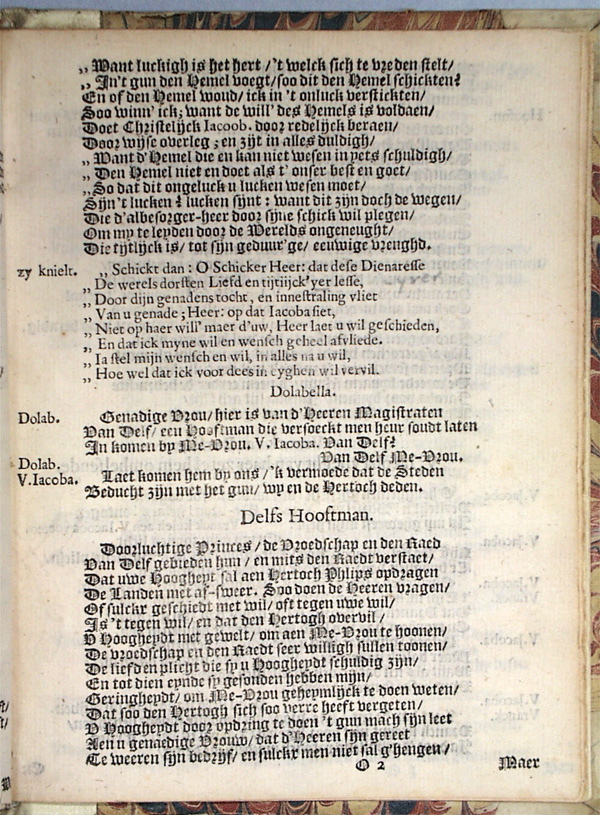 „ Want luckigh is het hert /'t welck sich te vreden stelt/
„ In't gun den Hemel voegt/soo dit den Hemel schickten?
En of den Hemel woud/ ick in 't onluck verstickten/
Soo winn' ick; want de will' des Hemels is voldaen/
Doet Christelijck Iacoob. door redelijck beraen/
Door wijse overleg ; en zijt in alles duldigh/
„ Want d'Hemel die en kan niet wesen in yets schuldigh/
„ Den Hemel niet en doet als t' onser best en goet/
„ So dat dit ongeluck u lucken wesen moet/
Sijn't lucken ? lucken sijnt : want dit zijn doch de wegen/
Die d'albesorger-heer door sijne schick wil plegen/
Om my te leyden door de Werelds ongeneught/
Die tijtlijck is/ tot sijn geduur'ge/ eeuwige vreughd.
zy knielt. „ Schickt dan : O Schicker Heer: dat dese Dienaresse
„ De werels dorsten Liefd en tijtijck'yer lesse,
„ Door dijn genadens tocht, en innestraling vliet
„ Van u genade ; Heer: op dat Iacoba siet,
„ Niet op haer will' maer d'uw, Heer laet u wil geschieden,
„ En dat ick myne wil en wensch geheel afvliede.
„ Ia stel mijn wensch en wil, in alles na u wil,
„ Hoe wel dat ick voor dees in eyghen wil vervil.
Dolabella.
Dolab. Genadige Vrou/ hier is van d'Heeren Magistraten
Van Delf/ een Hooftman die versoeckt men heur soudt laten
In komen by Me-Vrou. V. Iacoba. Van Delf?
Dolab. Van Delf Me-Vrou.
V.Iacoba. Laet komen hem by ons /'k vermoede dat de Steden
Beducht zijn met het gun/ wy en de Hertoch deden.
Delfs Hooftman.
Doorluchtige Princes/ de Vroedschap en den Raed
Van Delf gebieden hun / en mits den Raedt verstaet/
Dat uwe Hoogheyt sal aen Hertoch Phlips opdragen
De Landen met af-sweer. Soo doen de Heeren vragen/
Of sulckx geschiedt met wil/ oft tegen uwe wil/
Is 't tegen wil/ en dat den Hertogh overvil /
V Hoogheydt met gewelt/ om aen Me-Vrou te hoonen/
De vroedschap en den Raedt seer willigh sullen toonen/
De liefd en plicht die sy u Hoogheydt schuldig zijn/
En tot dien eynde sy gesonden hebben mijn/
Geringheydt/ om Me-Vrou geheymlijck te doen weten/
Dat soo den Hertogh sich soo verre heeft vergeten/
V Hoogheydt door opdring te doen 't gun mach sijn leet
Aen u genaedige Vrouw/ dat d'Heeren sijn gereet
Te weeren sijn bedrijf/ en sulckx men niet sal g'hengen/
O 2 Maer